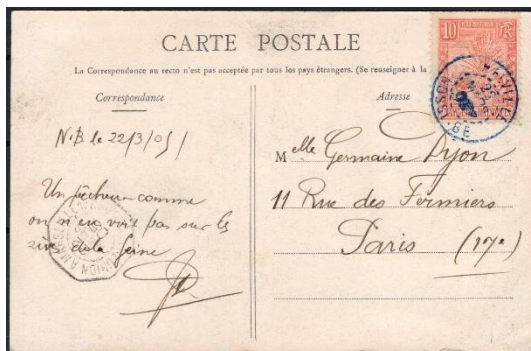 CARTE POSTALE
La Correspondance au recto n'est pas acceptée par tous les pays étrangers. (Se renseigner à la
Correspondance
Adresse
10
N.B le 22/3/05/
Un pêcheur comme
on n'en voit pas sur les
rives de la Seine
Melle Germaine Dyon
11 Rue des Fermiers
Paris (17e)